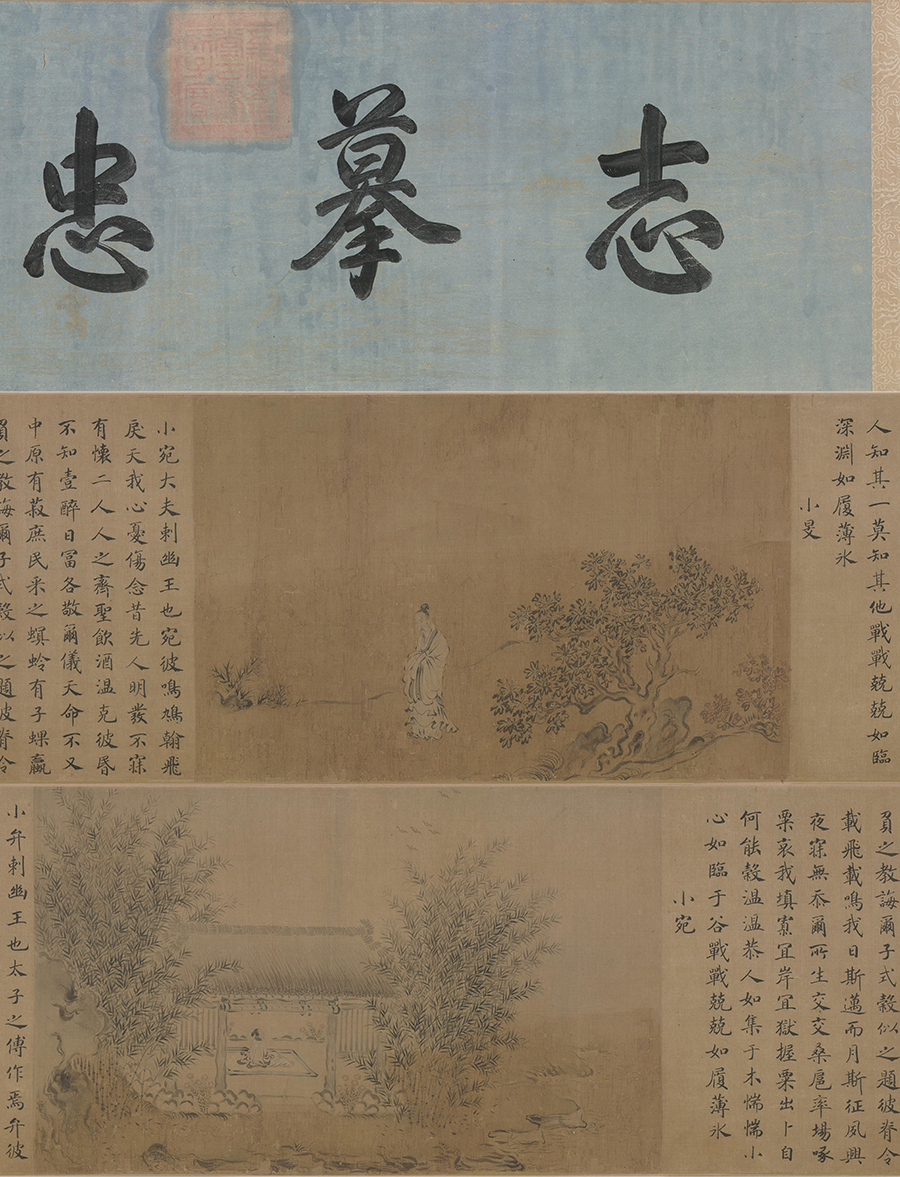 志摹忠
人知其一莫知其他戰戰兢兢如臨
深淵如履薄氷
小旻
小宛大夫刺幽王也宛彼鳴鳩翰飛
戾天我心憂傷念昔先人明發不寐
有懷二人人之齊聖飲酒温克彼昏
不知壹醉日冨各敬爾儀天命不又
中原有菽庶民采之螟蛉有子蜾蠃
負之教誨爾子式穀似之題彼脊令
負之教誨爾子式穀似之題彼脊令
載飛載鳴我日斯邁而月斯征夙興
夜寐無忝爾所生交交桑扈率場啄
粟哀我填寡冝岸冝獄握粟出卜自
何能穀温温恭人如集于木惴惴小
心如臨于谷戰戰兢兢如履薄氷
小宛
小弁刺幽王也太子之傅作焉弁彼